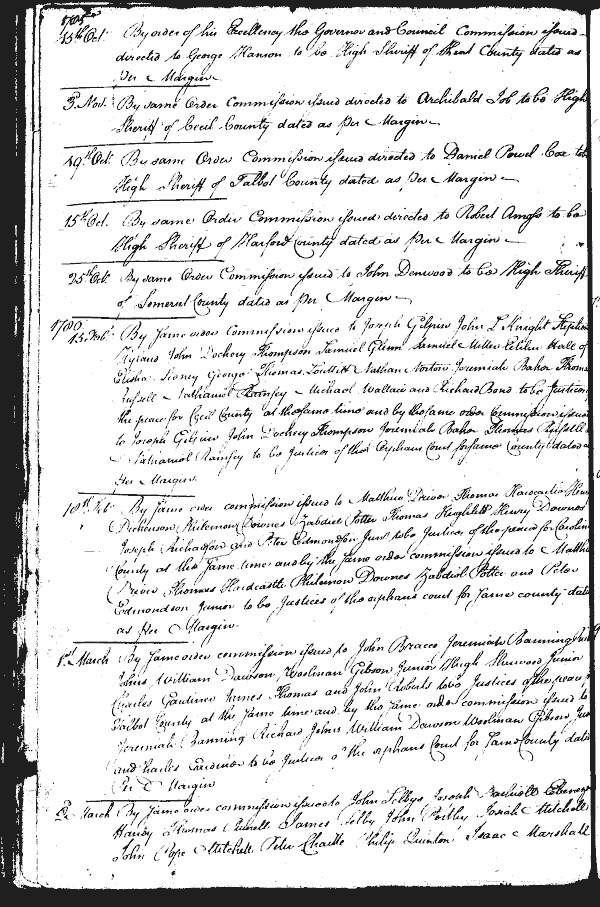 1785
15th Oct. By order of his Excellency the Governor and Council Commission issued
directed to George Hanson to be High Sheriff of Kent County dated as
Per Margin
5. Nov. By same Order Commission issued directed to Archibald Job to be High
Sheriff of Cecil County dated as per Margin
19th Oct. By same Order Commission issued directed to Daniel Powel Cox to be
High Sheriff of Talbot County dated as per Margin
15th Oct. By same Order Commission issued directed to Robert Amoss to be
High Sheriff of Harford County dated as per Margin
25th Oct. By same Order Commission issued to John Denwood to be High Sheriff
of Somerset County dated as per Margin
15. Feb. By same order commission issued to Joseph Gilpin John D Knight Stephen
Hyland John Dockery Thompson Samuel Glenn Samuel Miller Hall of
Elisha Sidney George Thomas Nathan Norton Jeremiah Baker Thomas
Russell Nathaniel Ramsey Michael Wallace and Richard Bond to be Justices
the peace for Cecil County at the same time and by the same order Commission issued
to Joseph Gilpin John Dockery Thompson Jeremiah Baker Thomas Russell
Nathaniel Ramsey to be Justices of the Orphans Court for same County dated as
Per Margin
18th Feb By same order commission issued to Matthew Driver Thomas Hardcastle Henry
Dickenson Philemon Downes Zabdiel Potter Thomas Hughlett Henry Downes
Joseph Richardson and Peter Edmondson Junr to be Justices of the peace for Caroline
County at the same time and by the same order commission issued to Matthew
Driver Thomas Hardcastle Philemon Downes Zabdiel Potter and Peter
Edmondson Junior to be Justices of the orphans court for same county dated
as Per Margin
1st March By same order commission issued to John Bracco Jeremiah Banning
Johns William Dawson, Woolman Gibson Junior Hugh Sherwood Junior
Charles Gardiner James Thomas and John Roberts to be Justices of the peace
Talbot County at the same time and by the same order commission issued to
Jeremiah Banning Richard Johns William Dawson Woolman Gibson Jun
and Charles Gardiner to be Justices of the orphans Court for same County dated
Per Margin
March By same order commission issued to John Selby Joseph Ebenezer
Handy Thomas Purnell James Selby John Josiah Mitchell
John Pope Mitchell Peter Chaille Philip Quinton Isaac Marshall